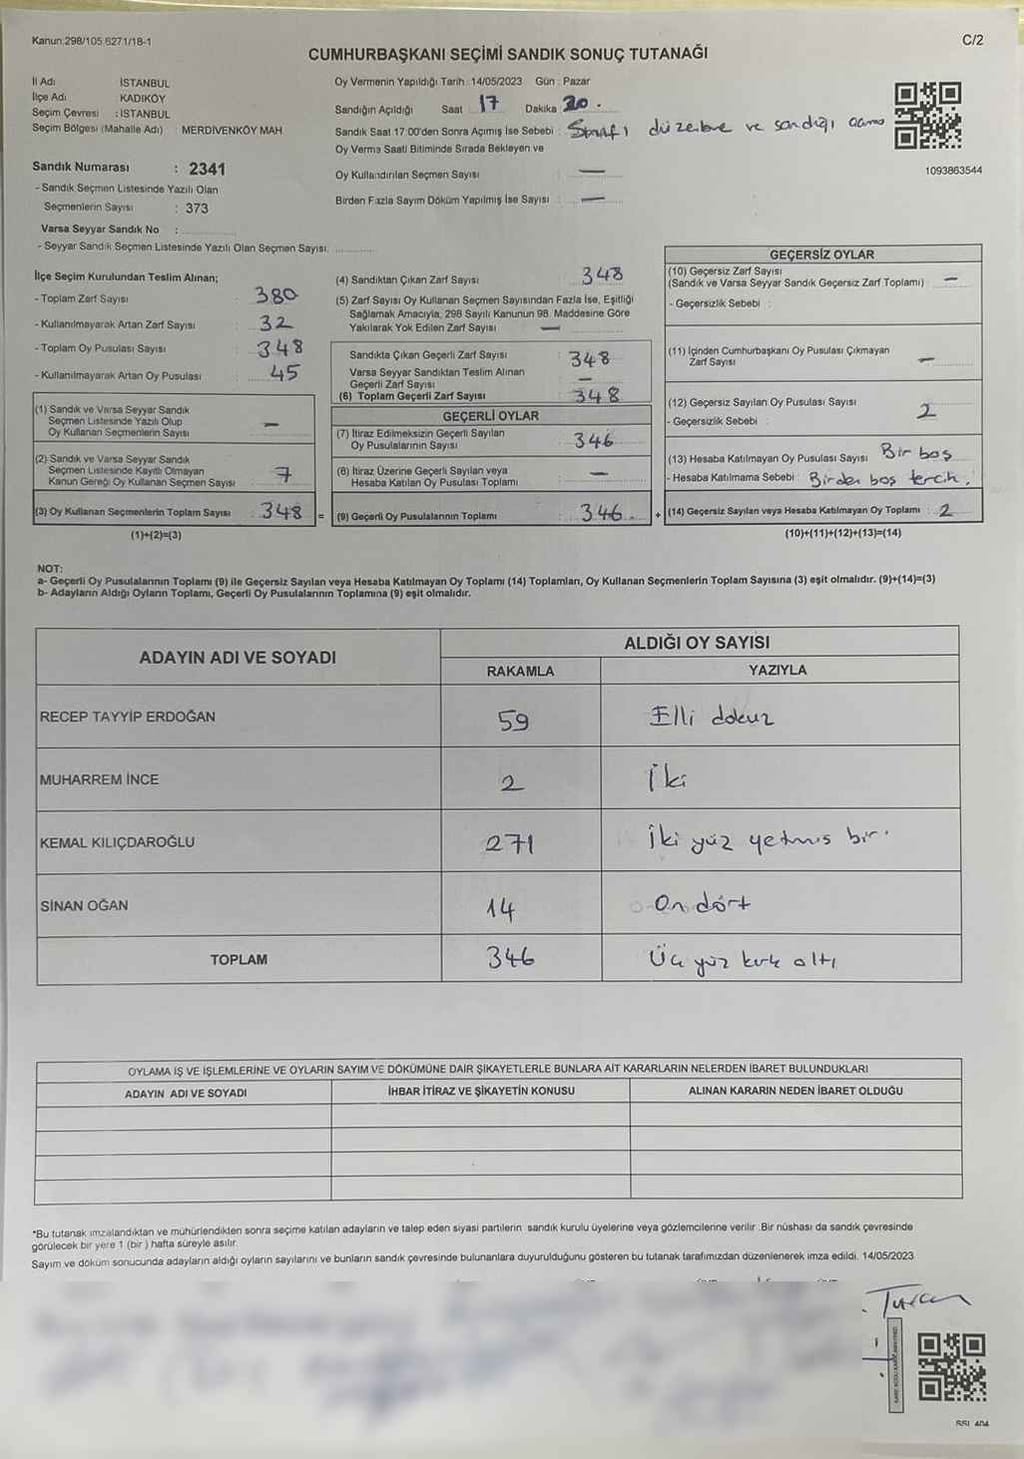 Kanun:298/105,6271/18-1
C/2
CUMHURBAŞKANI SEÇİMİ SANDIK SONUÇ TUTANAĞI
İl Adı İSTANBUL
İlçe Adı KADIKÖY
Seçim Çevresi : İSTANBUL
Seçim Bölgesi (Mahalle Adı) : MERDİVENKÖY MAH
Oy Vermenin Yapıldığı Tarih : 14/05/2023 Gün : Pazar
Sandığın Açıldığı Saat 17 Dakika 20
Sandık Saat 17:00'den Sonra Açımış İse Sebebi : Sınıfı düzenleme ve sandığı açma
Oy Verme Saati Bitiminde Sırada Bekleyen ve
Oy Kullandırılan Seçmen Sayısı : —
Birden Fazla Sayım Döküm Yapılmış İse Sayısı : —
1093863544
Sandık Numarası : 2341
- Sandık Seçmen Listesinde Yazılı Olan
Seçmenlerin Sayısı : 373
Varsa Seyyar Sandık No :
- Seyyar Sandık Seçmen Listesinde Yazılı Olan Seçmen Sayısı:
İlçe Seçim Kurulundan Teslim Alınan;
- Toplam Zarf Sayısı : 380
- Kullanılmayarak Artan Zarf Sayısı : 32
- Toplam Oy Pusulası Sayısı : 348
- Kullanılmayarak Artan Oy Pusulası : 45
(1) Sandık ve Varsa Seyyar Sandık
Seçmen Listesinde Yazılı Olup
Oy Kullanan Seçmenlerin Sayısı : —
(2) Sandık ve Varsa Seyyar Sandık
Seçmen Listesinde Kayıtlı Olmayan
Kanun Gereği Oy Kullanan Seçmen Sayısı : 7
(3) Oy Kullanan Seçmenlerin Toplam Sayısı : 348 =
(1)+(2)=(3)
(4) Sandıktan Çıkan Zarf Sayısı : 348
(5) Zarf Sayısı Oy Kullanan Seçmen Sayısından Fazla İse, Eşitliği
Sağlamak Amacıyla, 298 Sayılı Kanunun 98. Maddesine Göre
Yakılarak Yok Edilen Zarf Sayısı : —
Sandıkta Çıkan Geçerli Zarf Sayısı : 348
Varsa Seyyar Sandıktan Teslim Alınan
Geçerli Zarf Sayısı : —
(6) Toplam Geçerli Zarf Sayısı : 348
GEÇERLİ OYLAR
(7) İtiraz Edilmeksizin Geçerli Sayılan
Oy Pusulalarının Sayısı : 346
(8) İtiraz Üzerine Geçerli Sayılan veya
Hesaba Katılan Oy Pusulası Toplamı : —
(9) Geçerli Oy Pusulalarının Toplamı : 346 +
GEÇERSİZ OYLAR
(10) Geçersiz Zarf Sayısı
(Sandık ve Varsa Seyyar Sandık Geçersiz Zarf Toplamı) : —
- Geçersizlik Sebebi :
(11) İçinden Cumhurbaşkanı Oy Pusulası Çıkmayan
Zarf Sayısı : —
(12) Geçersiz Sayılan Oy Pusulası Sayısı : 2
- Geçersizlik Sebebi :
(13) Hesaba Katılmayan Oy Pusulası Sayısı : Bir boş
- Hesaba Katılmama Sebebi : Birden boş tercih.
(14) Geçersiz Sayılan veya Hesaba Katılmayan Oy Toplamı : 2
(10)+(11)+(12)+(13)=(14)
NOT:
a- Geçerli Oy Pusulalarının Toplamı (9) ile Geçersiz Sayılan veya Hesaba Katılmayan Oy Toplamı (14) Toplamları, Oy Kullanan Seçmenlerin Toplam Sayısına (3) eşit olmalıdır. (9)+(14)=(3)
b- Adayların Aldığı Oyların Toplamı, Geçerli Oy Pusulalarının Toplamına (9) eşit olmalıdır.
ADAYIN ADI VE SOYADI
ALDIĞI OY SAYISI
RAKAMLA YAZIYLA
RECEP TAYYİP ERDOĞAN 59 Elli dokuz
MUHARREM İNCE 2 İki
KEMAL KILIÇDAROĞLU 271 İki yüz yetmiş bir
SİNAN OĞAN 14 On dört
TOPLAM 346 Üç yüz kırk altı
OYLAMA İŞ VE İŞLEMLERİNE VE OYLARIN SAYIM VE DÖKÜMÜNE DAİR ŞİKAYETLERLE BUNLARA AİT KARARLARIN NELERDEN İBARET BULUNDUKLARI
ADAYIN ADI VE SOYADI İHBAR İTİRAZ VE ŞİKAYETİN KONUSU ALINAN KARARIN NEDEN İBARET OLDUĞU
*Bu tutanak imzalandıktan ve mühürlendikten sonra seçime katılan adayların ve talep eden siyasi partilerin sandık kurulu üyelerine veya gözlemcilerine verilir. Bir nüshası da sandık çevresinde
görülecek bir yere 1 (bir) hafta süreyle asılır.
Sayım ve döküm sonucunda adayların aldığı oyların sayılarını ve bunların sandık çevresinde bulunanlara duyurulduğunu gösteren bu tutanak tarafımızdan düzenlenerek imza edildi. 14/05/2023